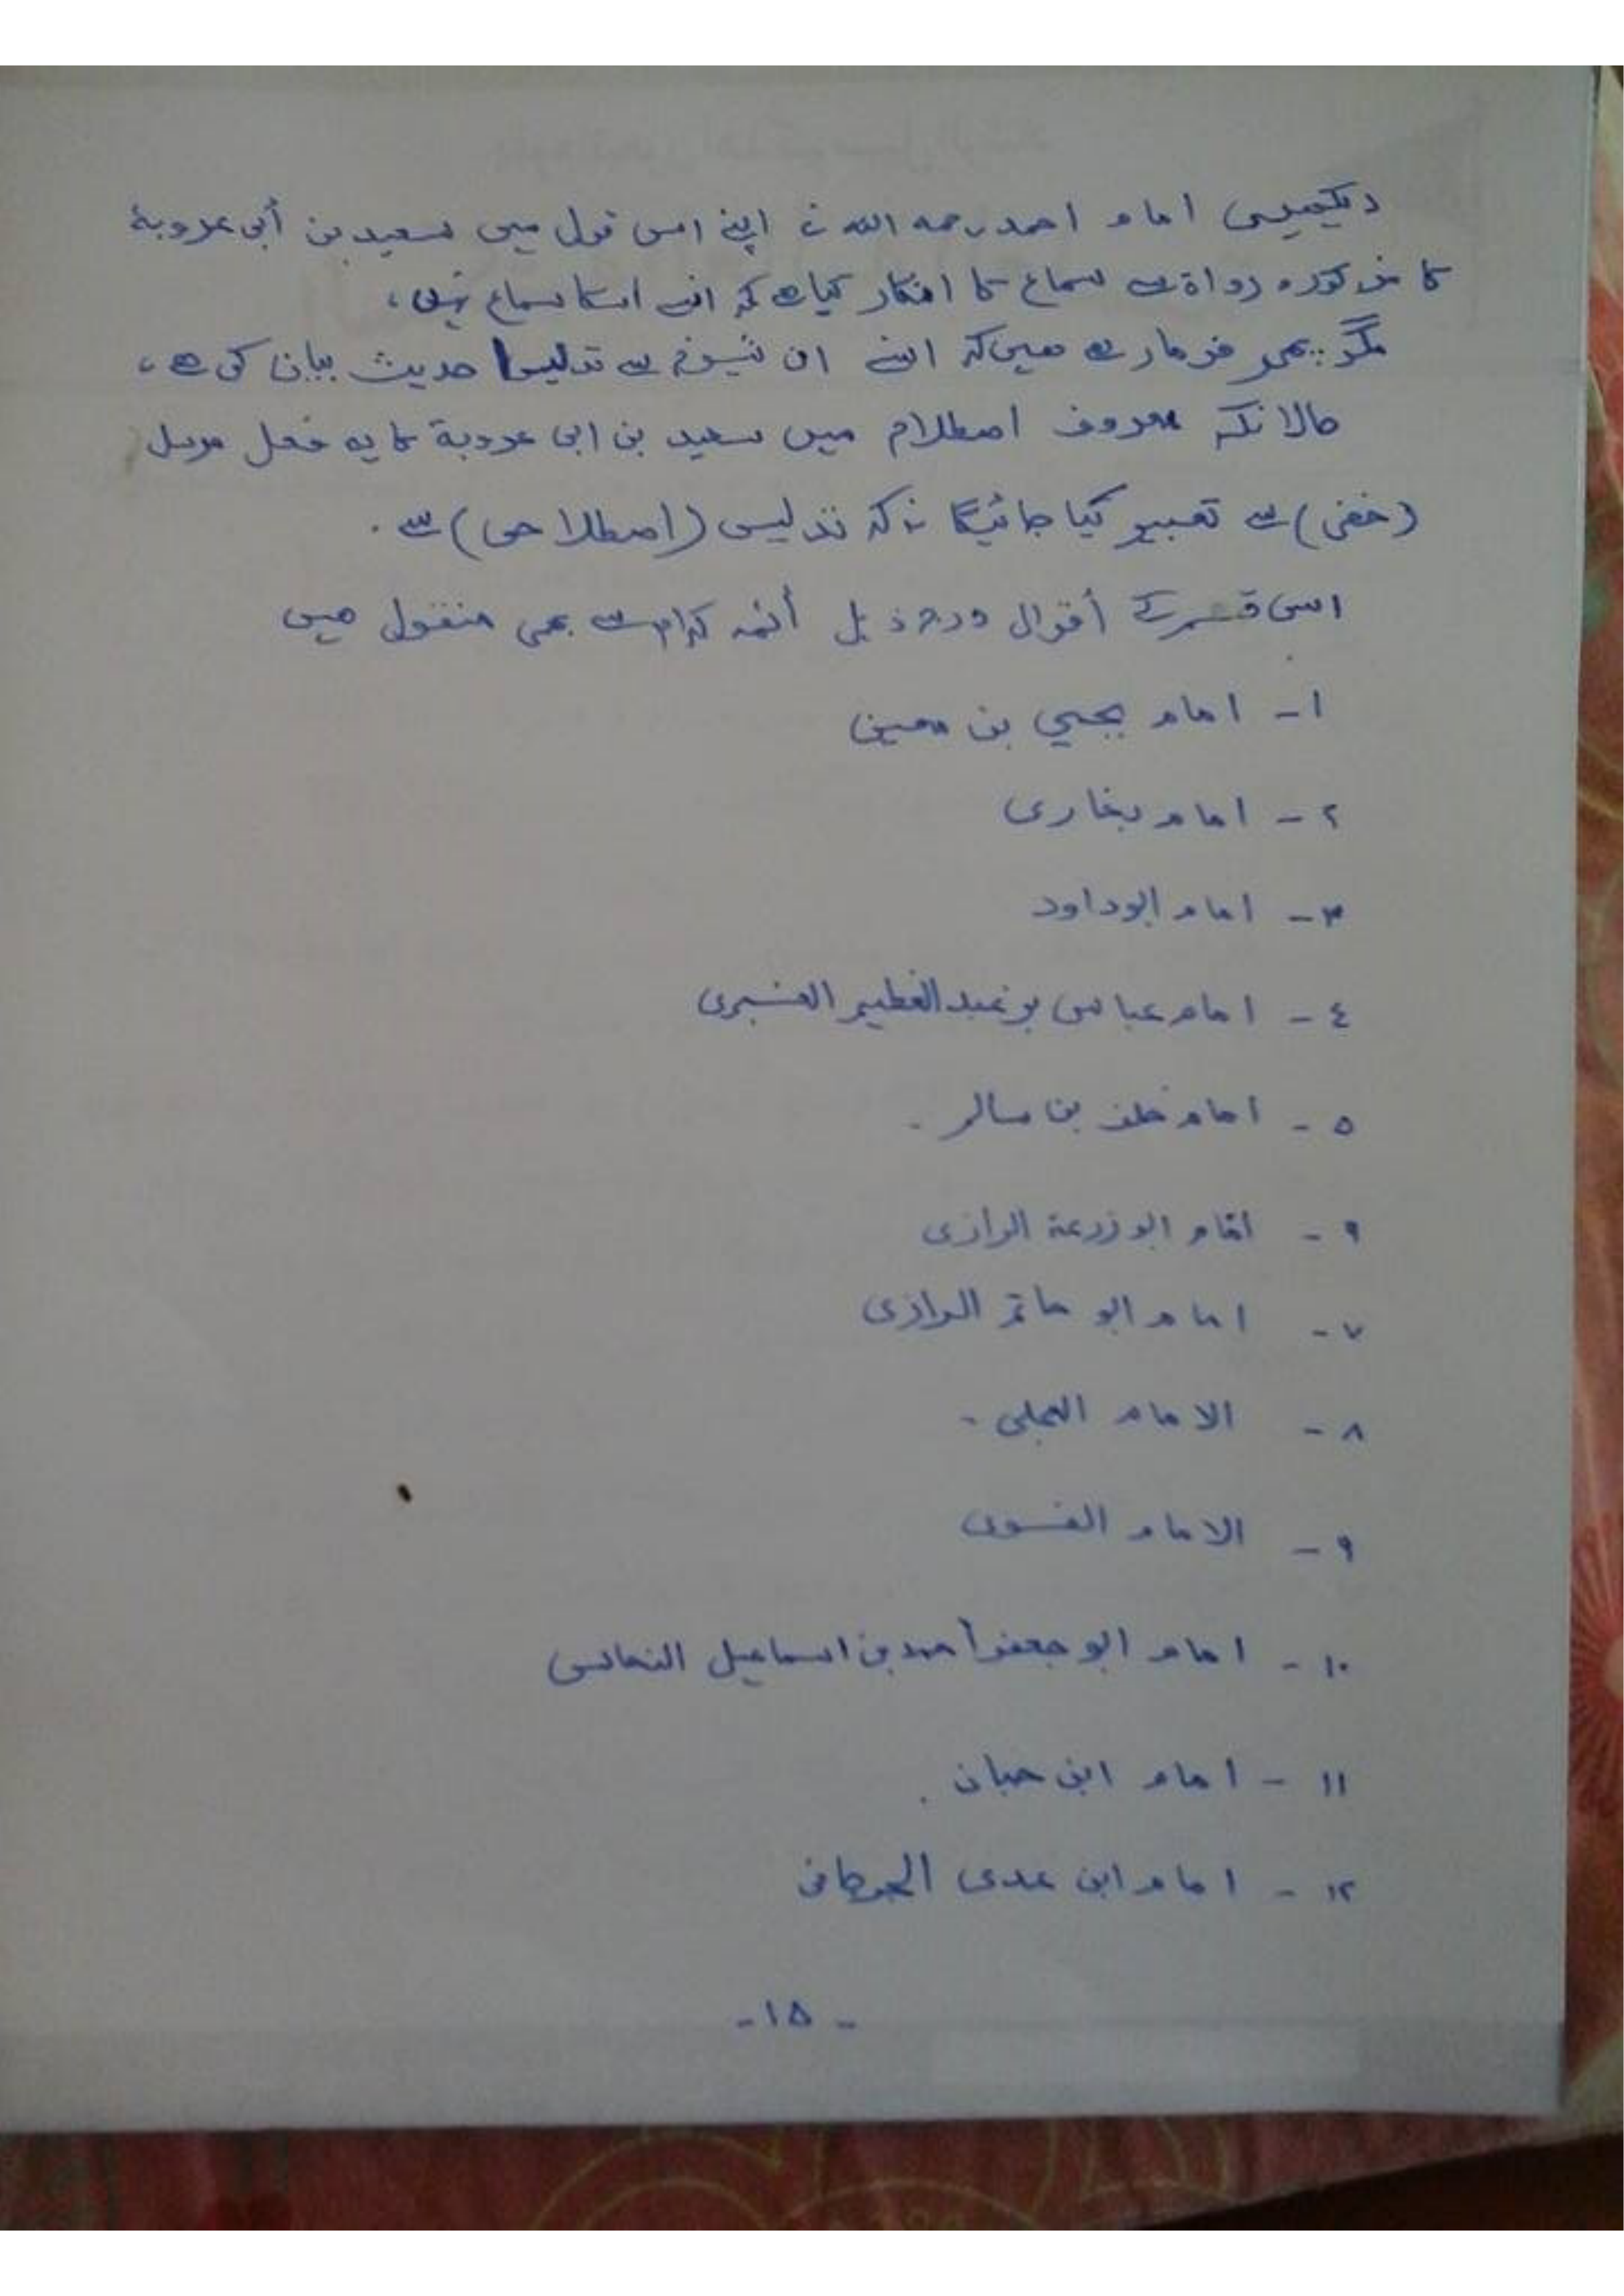 دیکھیں امام احمد رحمہ اللہ نے اپنے اس قول میں سعید بن أبی عروبة
کا مذکورہ رواۃ سے سماع کا انکار کیا ہے کہ انسے اسکا سماع نہیں،
مگر پھر فرما رہے ھیں کہ اسنے ان شیوخ سے تدلیسا حدیث بیان کی ھے،
حالانکہ معروف اصطلاح میں سعید بن ابی عروبة کا یہ فعل مرسل
(خفی) سے تعبیر کیا جائیگا نہ کہ تدلیس (اصطلاحی) سے .
اسی قسم کے أقوال درج ذیل أئمہ کرام سے بھی منقول ھیں
۱- امام یحیي بن معین
۲- امام بخاری
۳- امام ابو داود
٤- امام عباس بن عبد العظیم العنبری
٥- امام خلف بن سالم .
٦- امام ابو زرعة الرازی
۷- امام ابو حاتم الرازی
۸- الامام العجلی .
۹- الامام الفسوی
۱۰- امام ابو جعفر أحمد بن اسماعیل النحاس
۱۱- امام ابن حبان .
۱۲- امام ابن عدی الجرجانی
- ۱۵ -